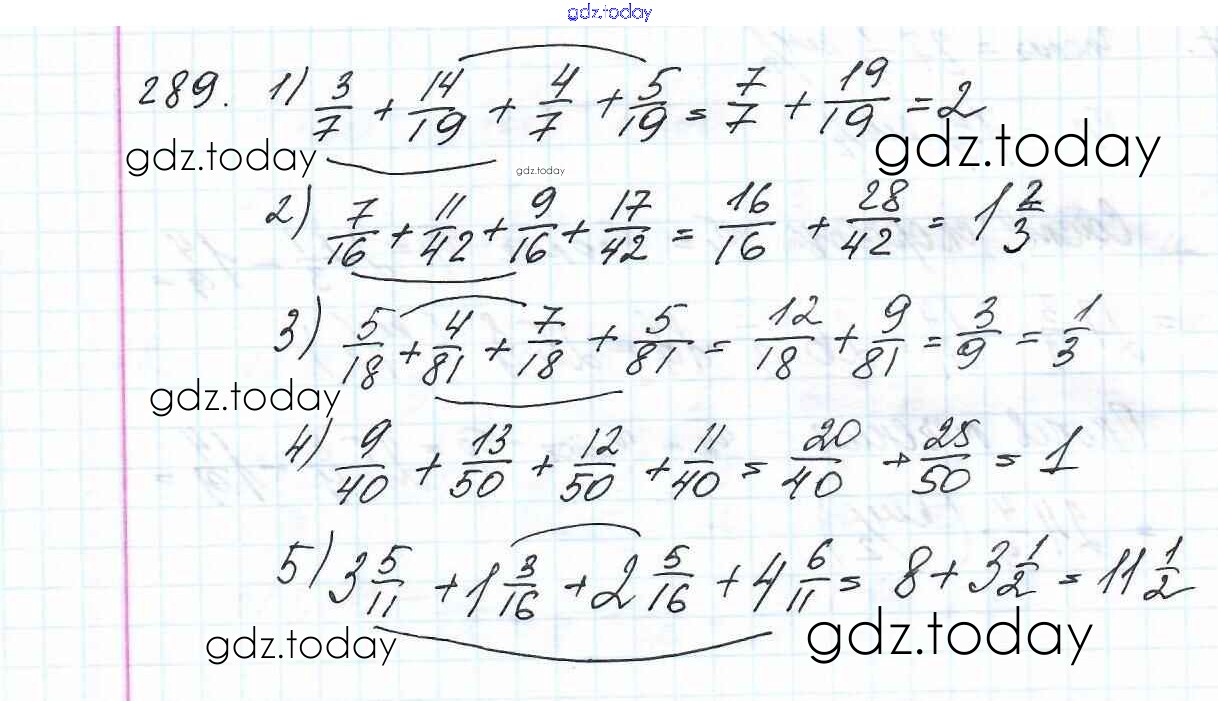 gdz.today
289. 1) 3/7 + 14/19 + 4/7 + 5/19 = 7/7 + 19/19 = 2
gdz.today gdz.today gdz.today
2) 7/16 + 11/42 + 9/16 + 17/42 = 16/16 + 28/42 = 1 2/3
3) 5/18 + 4/81 + 7/18 + 5/81 = 12/18 + 9/81 = 3/9 = 1/3
gdz.today
4) 9/40 + 13/50 + 12/50 + 11/40 = 20/40 + 25/50 = 1
5) 3 5/11 + 1 3/16 + 2 5/16 + 4 6/11 = 8 + 3 1/2 = 11 1/2
gdz.today gdz.today